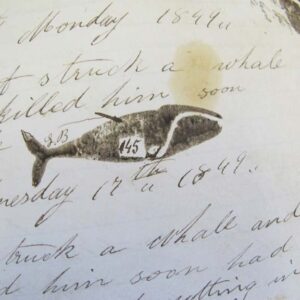 Monday 1849
struck a whale
killed him soon
S.B
145
nesday 17th 1849
truck a whale and
d him soon had
everything in